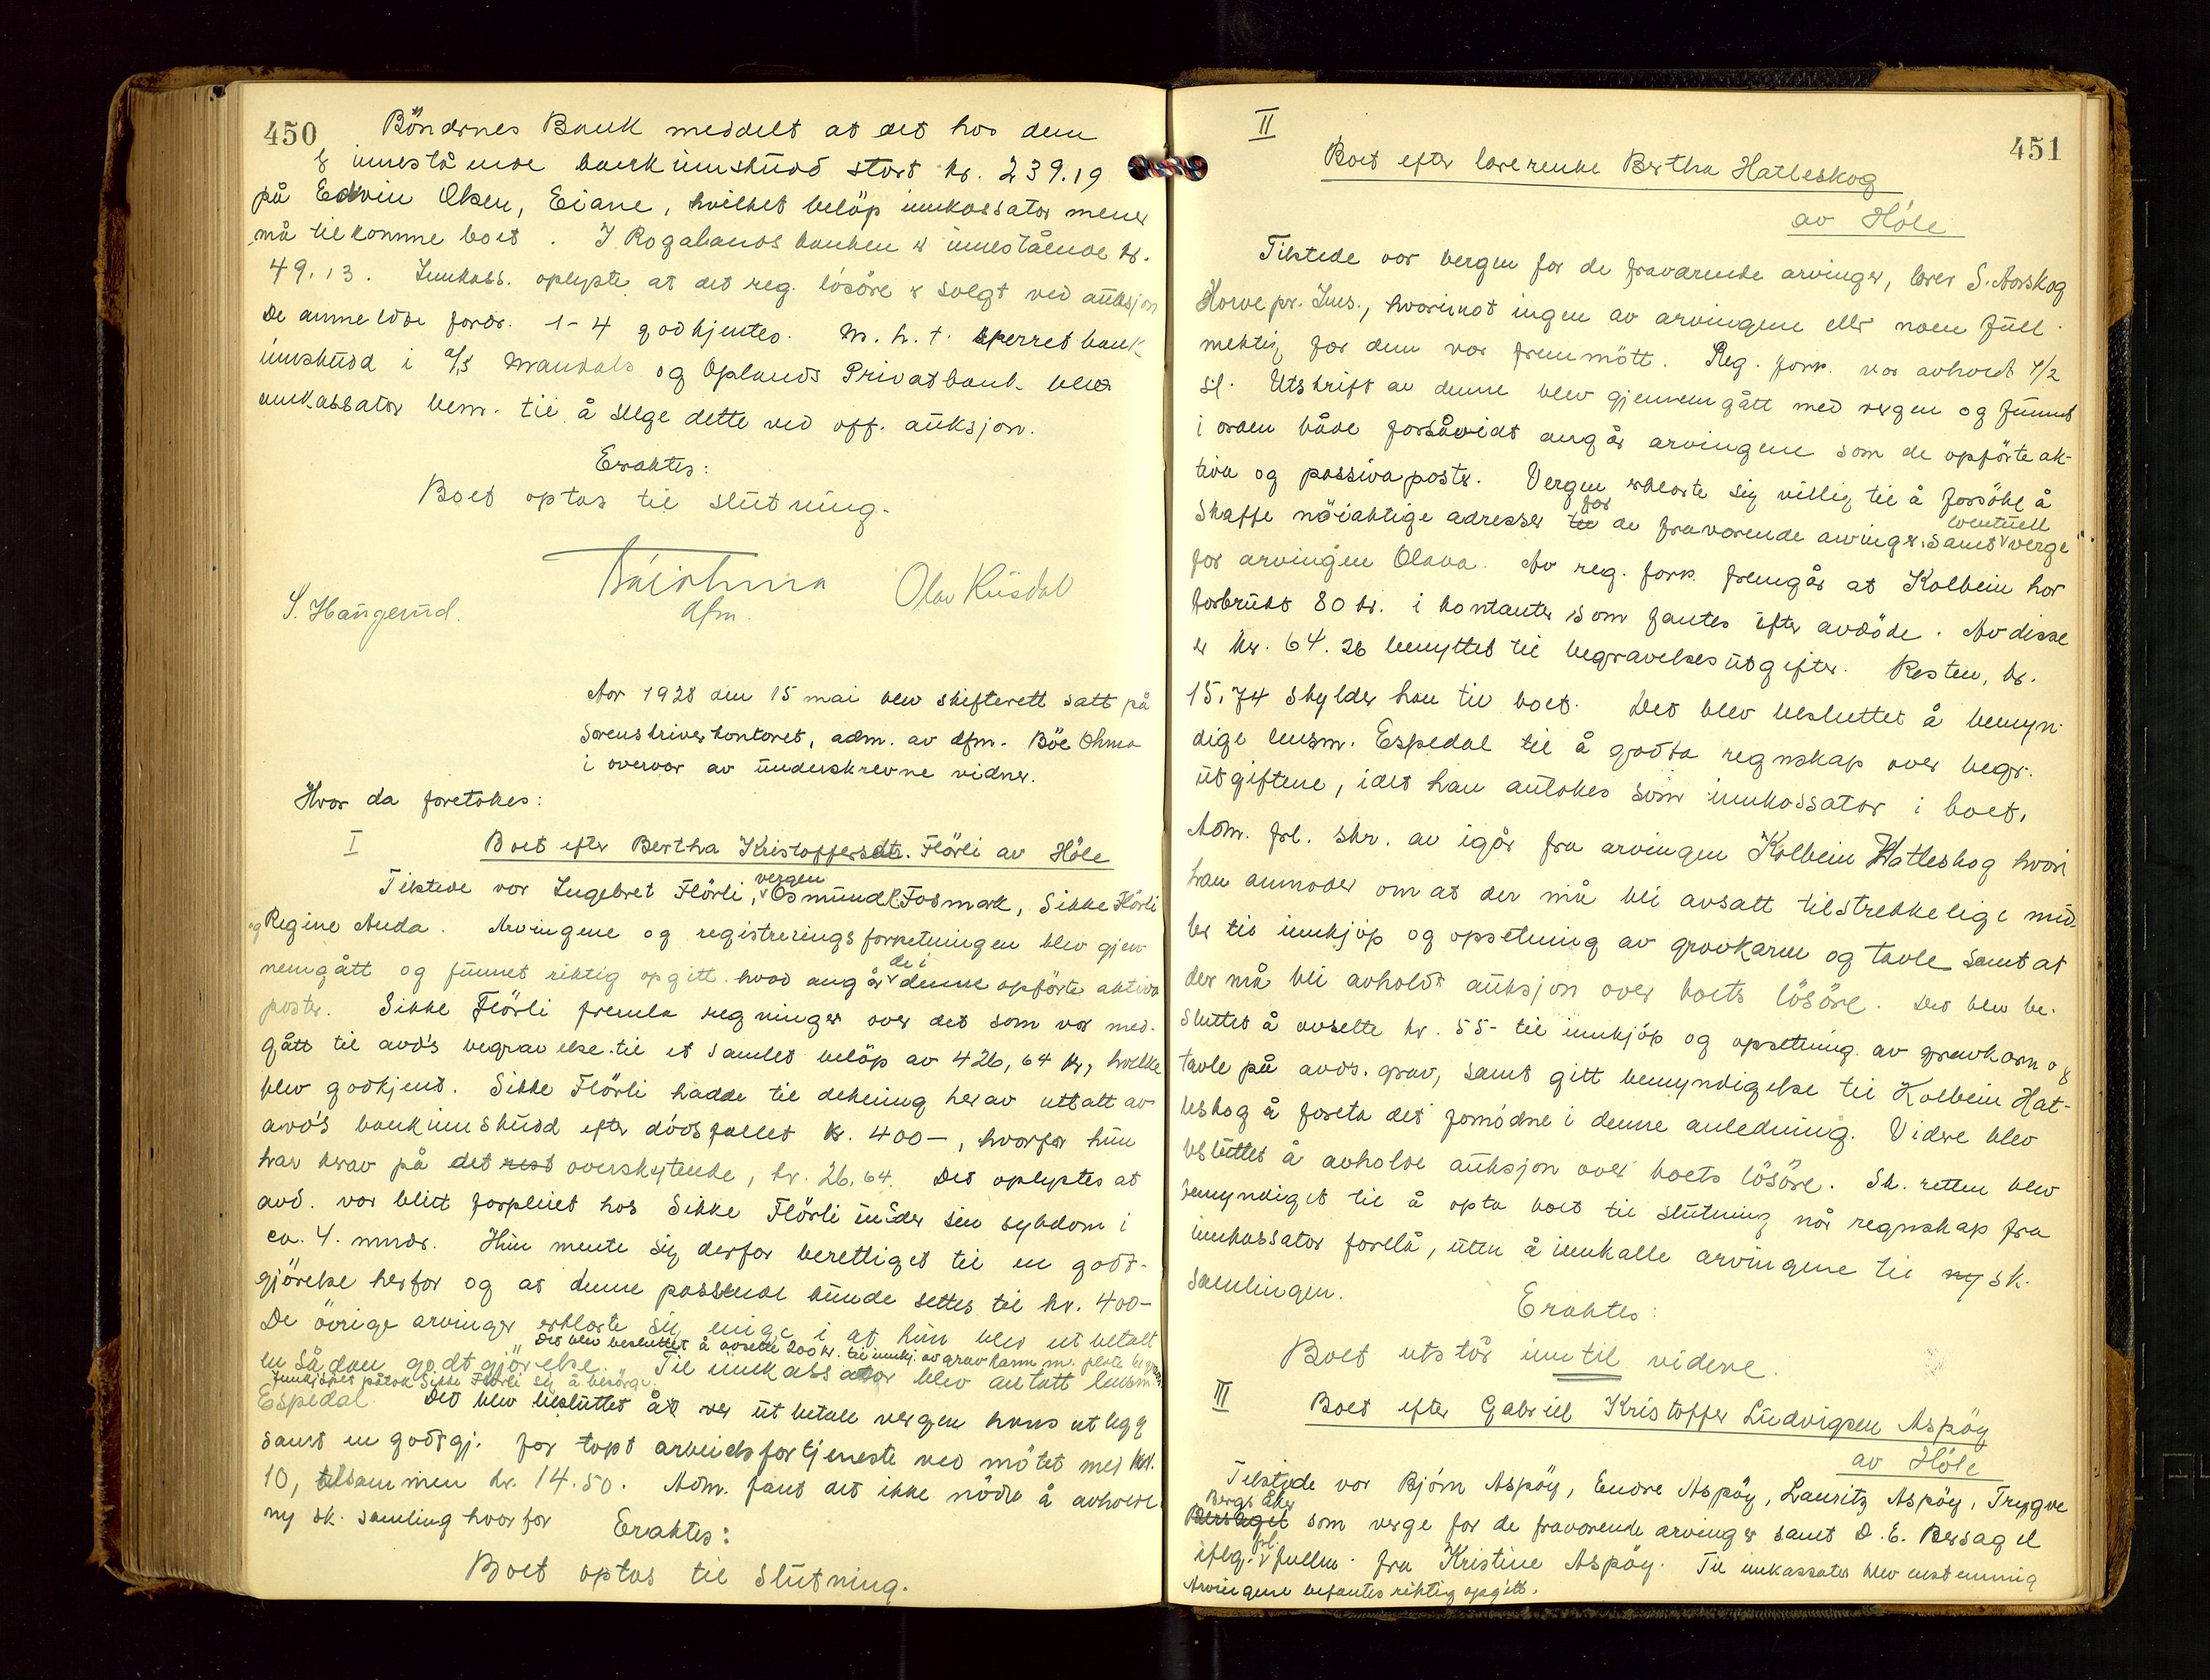 450
Böndernes Bank meddelt at det hos dem
er innestående bankinnskudd stort kr. 239.19
på Edvin Olsen, Eiane, hvilket belöp innkassator mener
må tilkomme boet. I Rogalandsbanken er innestående kr.
49.13. Innkass. oplyste at det reg. lösöre er solgt ved auksjon
De anmeldte fordr. 1-4 godkjentes. M.h.t. sperret bank-
innskudd i a/s Mandals og Oplands Privatbank blev
innkassator bem. til å selge dette ved off. auksjon.
Eraktes:
Boet optas til slutning.
Bóe Ohma
dfm.
Olav Kiisdal
S. Haugerud.
Aar 1928 den 15 mai blev skifterett satt på
sorenskriverkontoret, adm. av dfm. Böe Ohma
i overvær av underskrevne vidner.
Hvor da foretokes:
I
Boet efter Bertha Kristoffersdtr. Flörli av Höle
Tilstede var Ingebret Flörli, vergen Osmund Fosmark, Sikke Flörli
og Regine Auda. Arvingene og registreringsforretningen blev gjen-
nemgått og funnet riktig opgitt hvad angår de i denne opförte aktiva
poster. Sikke Flörli fremla regninger over det som var med-
gått til avd's begravelse til et samlet belöp av 426,64 kr, hvilke
blev godkjent. Sikke Flörli hadde til dekning herav uttatt av
avd's bankinnskudd efter dödsfallet kr. 400-, hvorfor hun
har krav på det rest overskytende, kr. 26.64. Det oplystes at
avd. var blitt forpleiet hos Sikke Flörli under sin sykdom i
ca. 4. mndr. Hun mente sig derfor berettiget til en godt-
gjörelse herfor og at denne passende kunde settes til kr. 400-
De övrige arvinger erklærte sig enige i at hun blev utbetalt
Det blev besluttet å avsette 200 kr. til innkj. av gravkarm m. plate
en sådan godtgjörelse. Til innkassator blev antatt lensm.
Innkjöpet påtok Sikke Flörli sig å besörge.
Espedal. Det blev besluttet å utbetale vergen hans utlegg
samt en godtgj. for tapt arbeidsfortjeneste ved mötet med kr.
10, tilsammen kr. 14.50. Adm. fant det ikke nödv. å avholde
ny sk. samling hvorfor
Eraktes:
Boet optas til slutning.
451
II
Boet efter lærerenke Bertha Hatleskog
av Höle
Tilstede var vergen for de fraværende arvinger, lærer S. Aarskog
Horve pr. Ims., hvorimot ingen av arvingene eller noen full-
mektig for dem var fremmött. Reg. forr. var avholdt 4/2
sl. Utskrift av denne blev gjennemgått med vergen og funnet
i orden både forsåvidt angår arvingene som de opförte ak-
tiva og passivaposter. Vergen erklærte sig villig til å forsöke å
skaffe nöiaktige adresser til for de fraværende arvinger, samt eventuell verge
for arvingen Olava. Av reg. forr. fremgår at Kolbein har
forbrukt 80 kr. i kontanter som fantes efter avdöde. Av disse
er kr. 64.26 benyttet til begravelsesutgifter. Resten, kr.
15.74 skylder han til boet. Det blev besluttet å bemyn-
dige lensm. Espedal til å godta regnskap over begr.
utgiftene, idet han antokes som innkassator i boet.
Adm. frl. skr. av igår fra arvingen Kolbein Hatleskog hvori
han anmoder om at der må bli avsatt tilstrekkelige mid-
ler til innkjöp og opsetning av gravkarm og tavle samt at
der må bli avholdt auksjon over boets lösöre. Det blev be-
sluttet å avsette kr. 55- til innkjöp og opsetning av gravkarm og
tavle på avds. grav, samt gitt bemyndigelse til Kolbein Hat-
leskog å foreta det fornödne i denne anledning. Videre blev
besluttet å avholde auksjon over boets lösöre. Sk. retten blev
bemyndiget til å opta boet til slutning når regnskap fra
innkassator forelå, uten å innkalle arvingene til ny sk.
samlingen.
Eraktes:
Boet utstår inntil videre.
III
Boet efter Gabriel Kristoffer Ludvigsen Aspöy
av Höle
Tilstede var Bjórn Aspöy, Endre Aspöy, Lauritz Aspöy, Trygve
Bergsåker
Bersaget som verge for de fraværende arvinger samt D. E. Bersagel
iflg. frl. fullm. fra Kristine Aspöy. Til innkassator blev enstemmig
Arvingene befantes riktig opgitt.